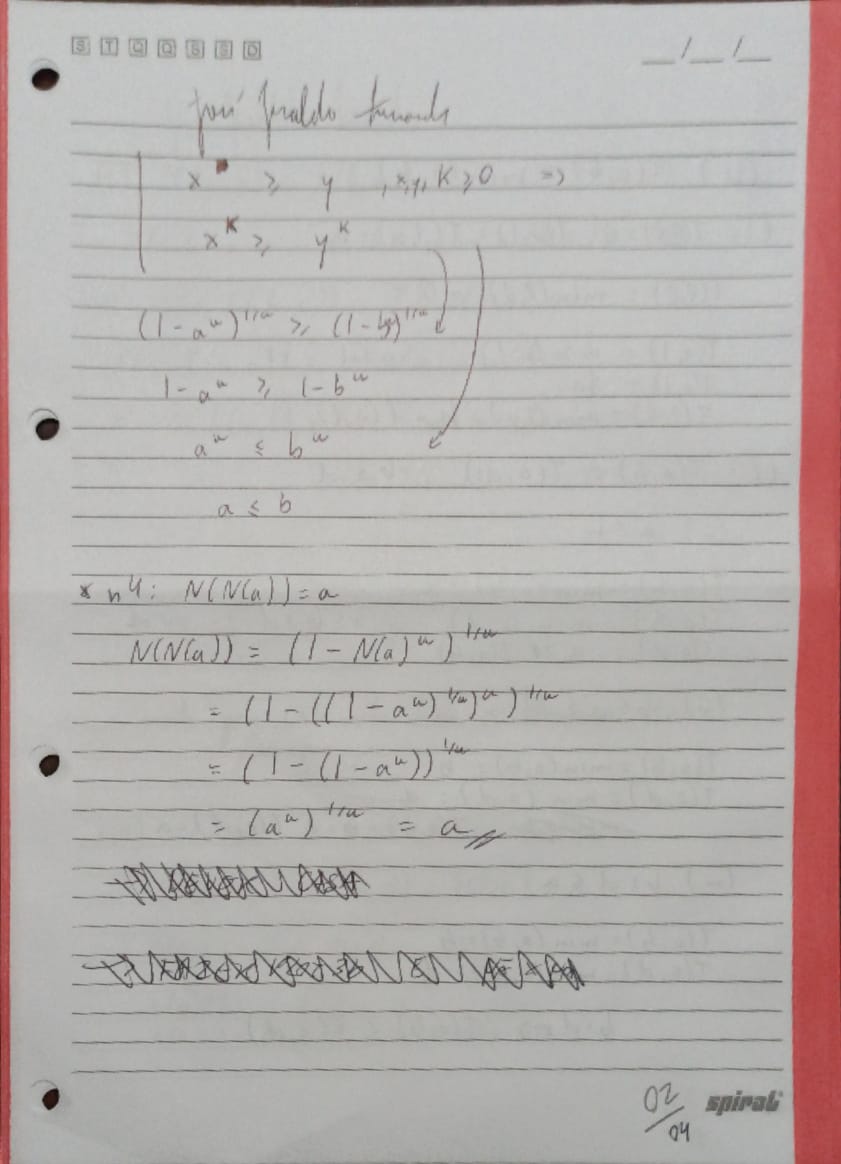 S T Q Q S S D __/__/__
José Geraldo
x ≥ y , x, y, K ≥ 0 =>
x^K ≥ y^K
(1 - a^w)^{1/w} ≥ (1 - b^w)^{1/w}
1 - a^w ≥ 1 - b^w
a^w ≤ b^w
a ≤ b
* n4: N(N(a)) = a
N(N(a)) = (1 - N(a)^w)^{1/w}
= (1 - ((1 - a^w)^{1/w})^w)^{1/w}
= (1 - (1 - a^w))^{1/w}
= (a^w)^{1/w} = a //
02/04 spiral